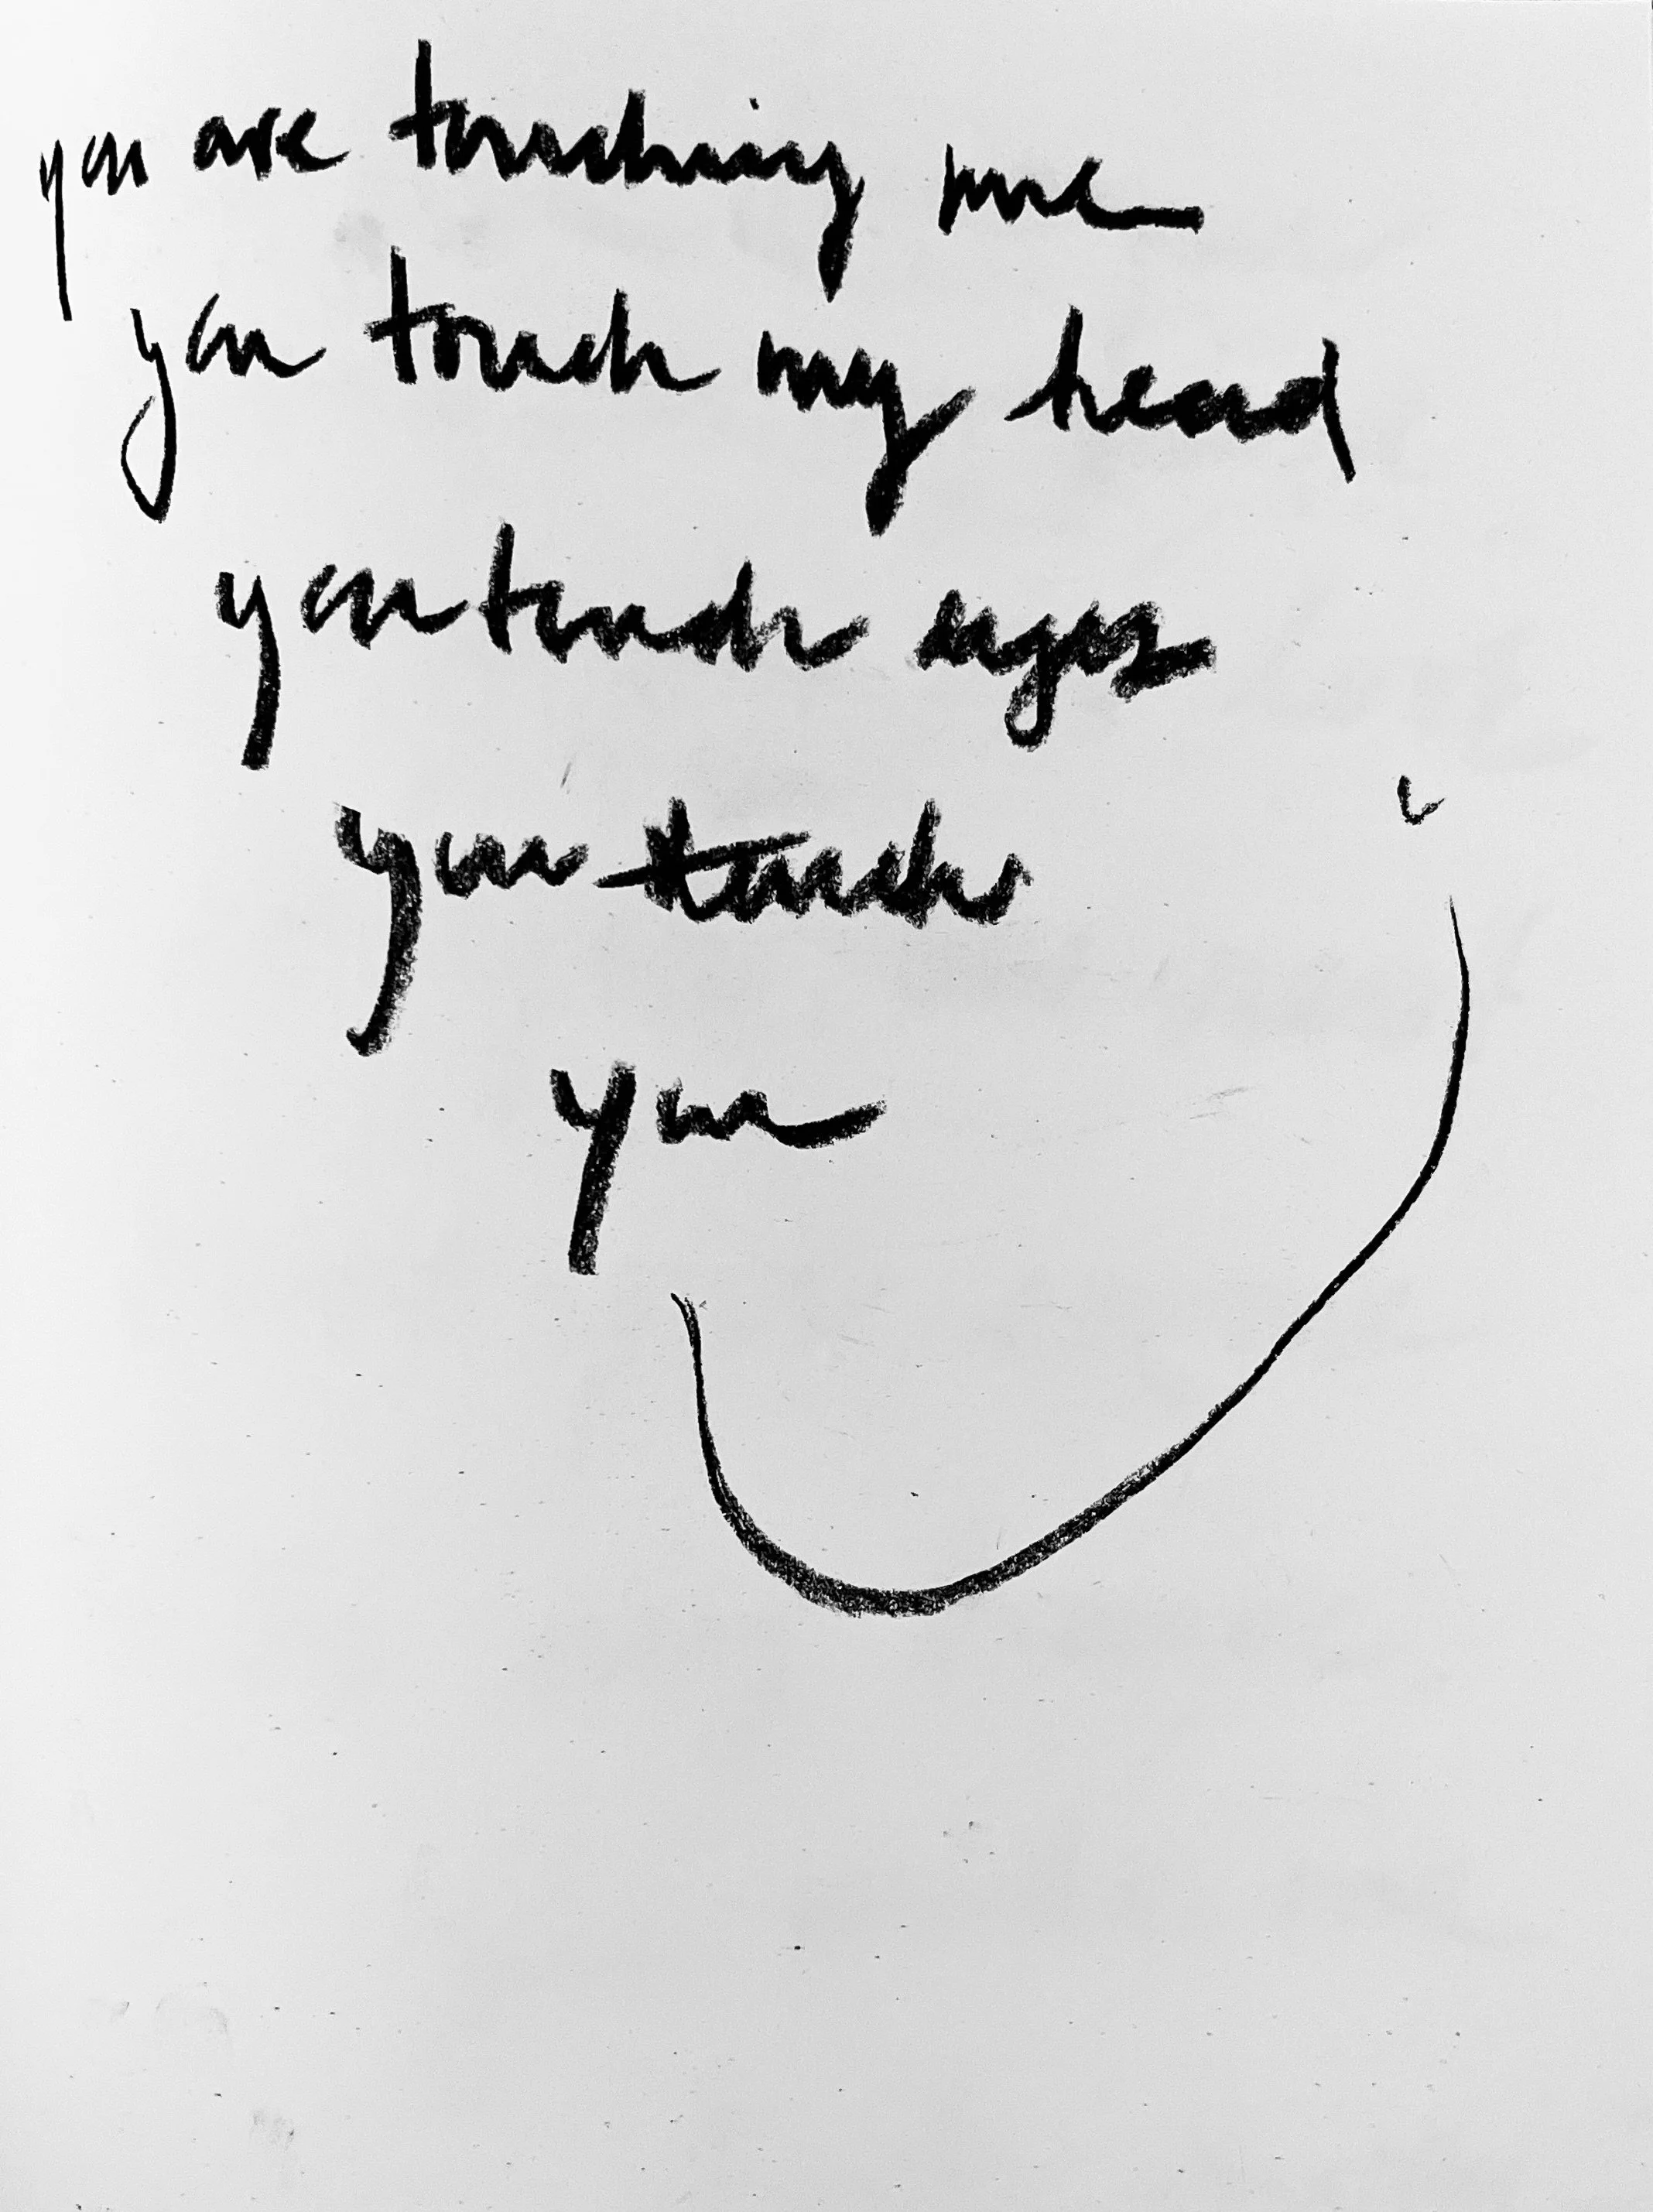 you are touching me
you touch my head
you touch eyes
i
you touch
you